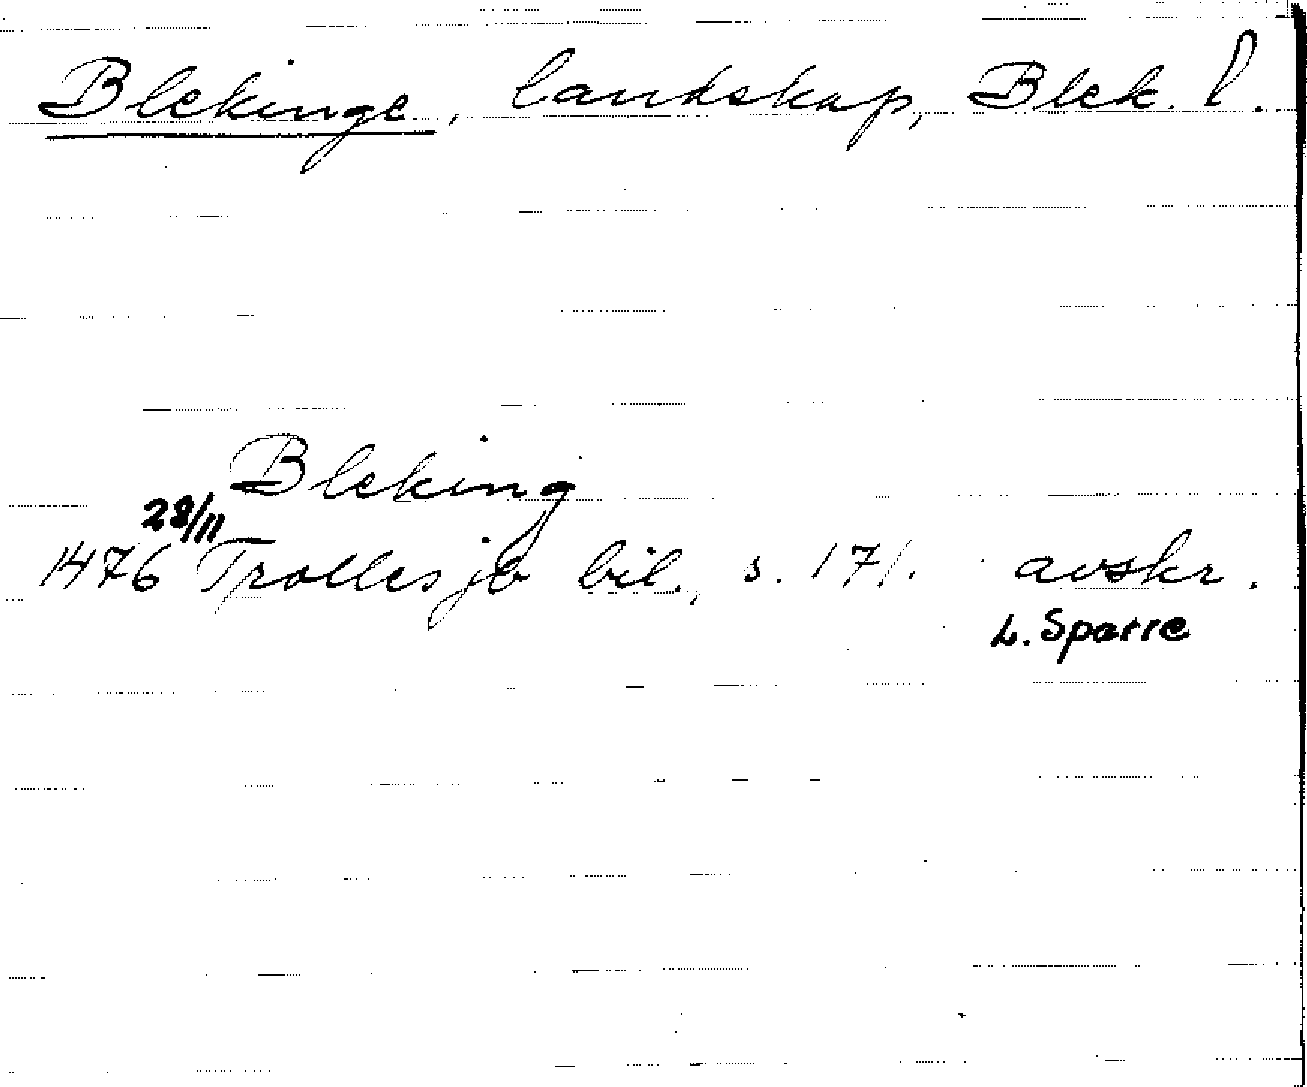 Blekinge, landskap, Blek. l.
Bleking
28/11
1476 Trollesjb bil., s. 171. avskr.
L. Sparre